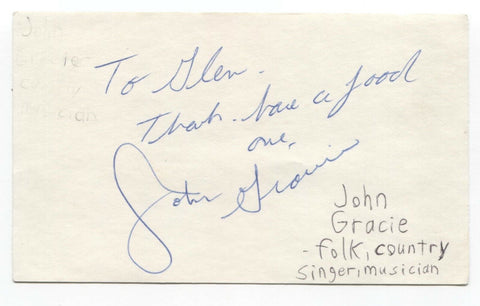 John
Gracie
country
musician
To Glen.
Thanks. have a good
one,
John Gracie
John
Gracie
- folk, country
singer, musician